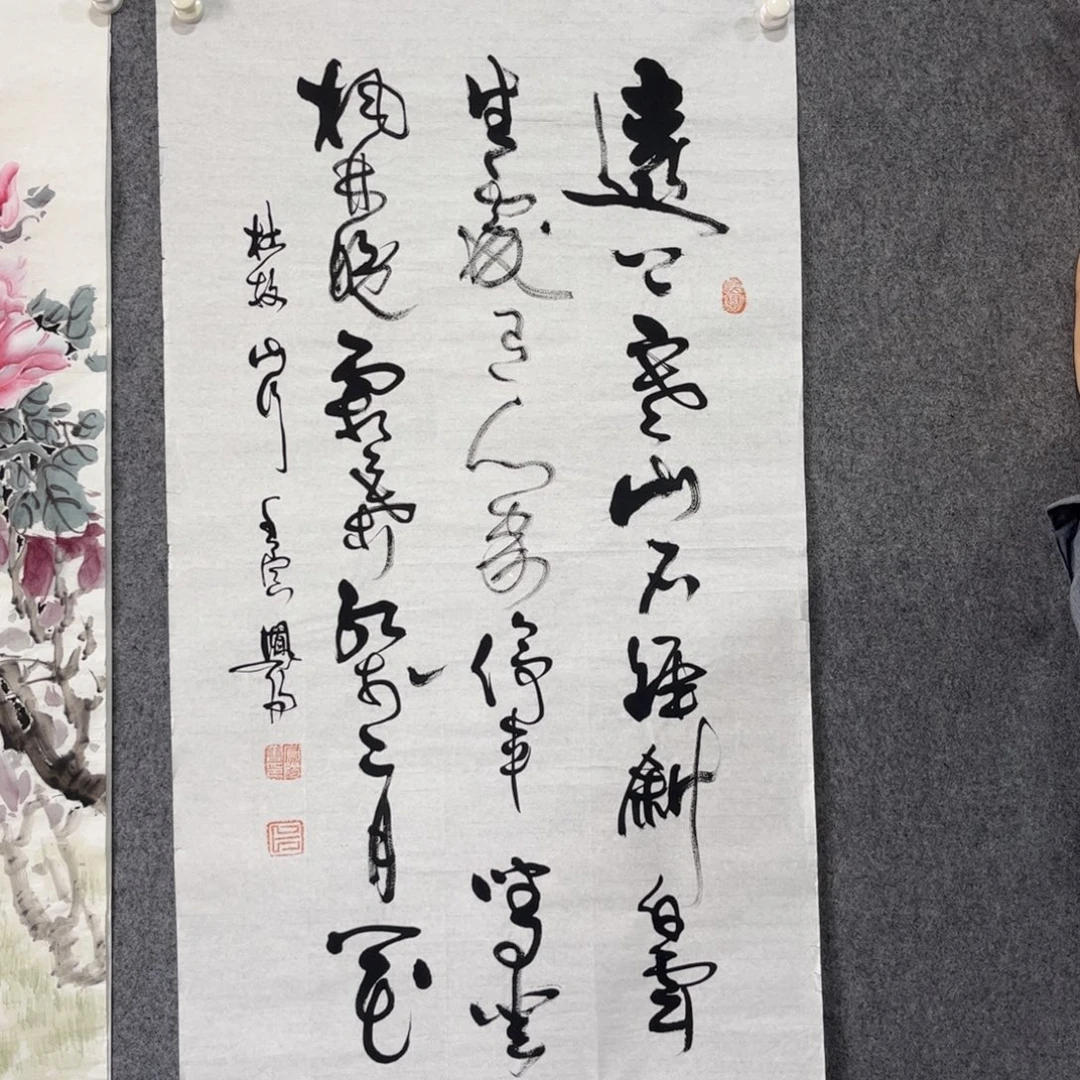 遠上寒山石徑斜白雲
生處有人家停車坐愛
楓林晚霜葉紅於二月花
杜牧 山行 壬寅